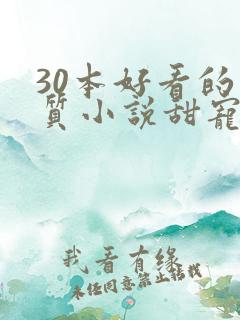 30本好看的
質小說甜寵
我看有緣
未任同意禁止轉載